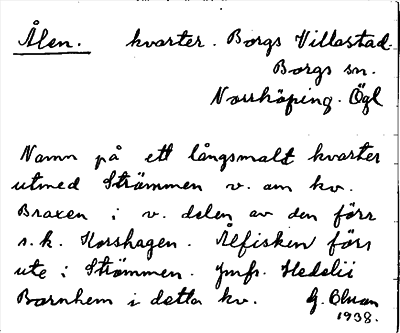 Ålen. kvarter. Borgs Villastad.
Borgs sn.
Norrköping. Ögl
Namn på ett långsmalt kvarter
utmed Strömmen v. om kv.
Braxen i v. delen av den förr
s.k. Korshagen. Ålfisken förr
ute i Strömmen. Jmfr. Hedelii
Barnhem i detta kv. G. Elman
1938.